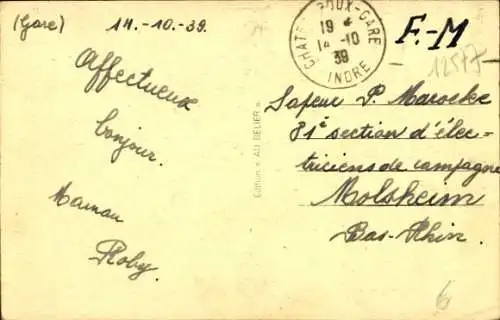 (Gare) 14.-10-39.
Affectueux
bonjour.
Maman
Roby.
Edition « AU BELIER »
CHATEAUROUX-GARE
19 *
14-10
39
INDRE
F.-M
12577
Sapeur P. Marocke
81e section d'élec-
triciens de campagne
Molsheim
Bas-Rhin.
6